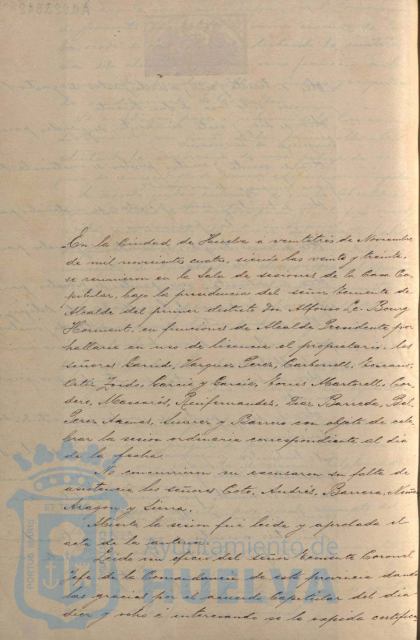 En la Ciudad de Huelva a veintitrés de Noviembre
de mil novecientos cuatro, siendo las veinte y treinta,
se reunieron en la Sala de sesiones de la Casa Ca-
pitular, bajo la presidencia del señor Teniente de
Alcalde del primer distrito Don Alfonso Le Bourg
en funciones de Alcalde Presidente por
hallarse en uso de licencia el propietario, los
señores Garrido, Vazquez Perez, Carbonell,
Ortiz, García y García, Torres Martorell, Cor-
dero, Mascarós, Quifernandez, Diaz Barredo, Bel,
Perez Suarez y Barrios con objeto de cele-
brar la sesion ordinaria correspondiente al dia
de la fecha.
No concurrieron ni escusaron su falta de
asistencia los señores Coto, Andrés, Barrera, Muñoz
Aragon y Sierra.
Abierta la sesion fué leida y aprobada el
acta de la anterior.
Leido un oficio del señor Teniente Coronel
Jefe de la Comandancia de esta provincia dando
las gracias por el acuerdo Capitular del dia
diez y ocho é interesando se le expida certifica
Ayuntamiento de
HUELVA